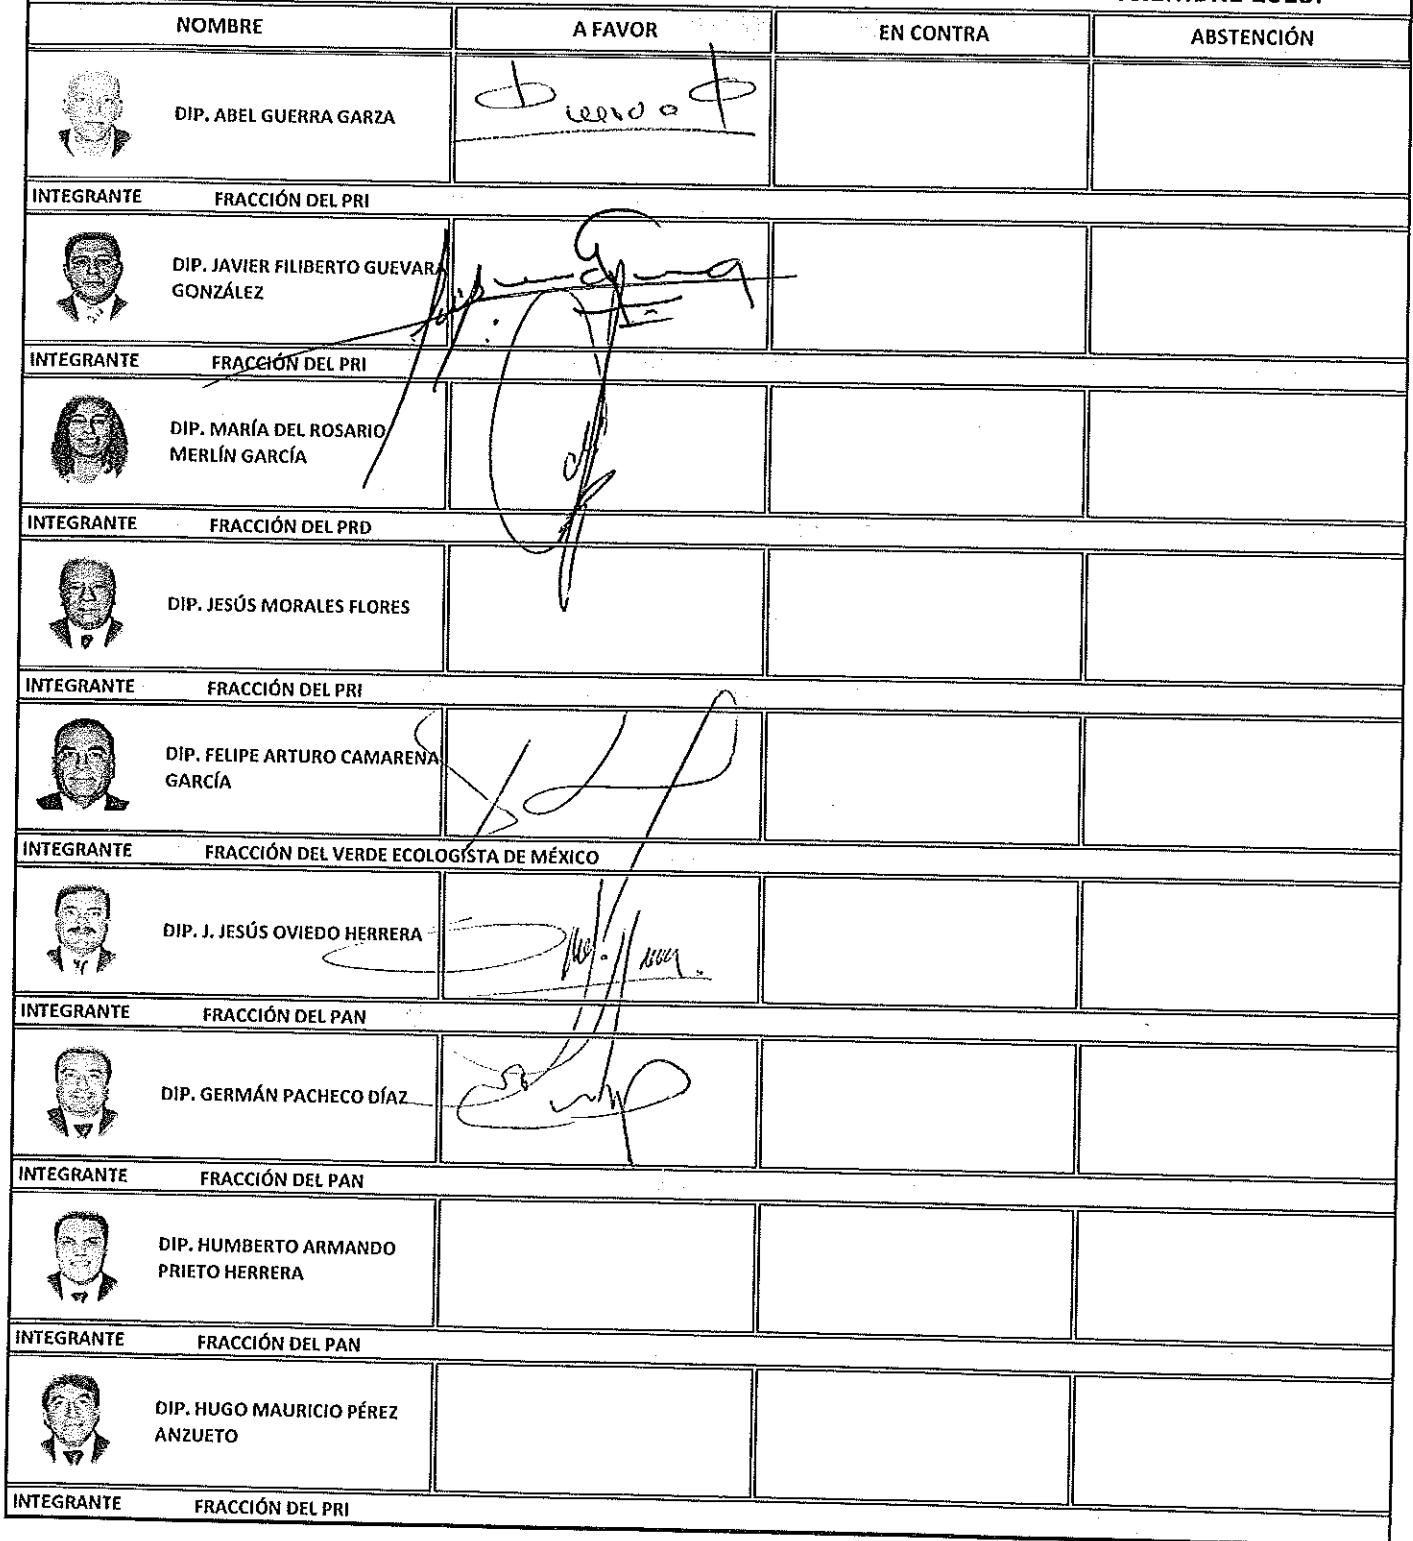 NOMBRE A FAVOR EN CONTRA ABSTENCIÓN
DIP. ABEL GUERRA GARZA
INTEGRANTE FRACCIÓN DEL PRI
DIP. JAVIER FILIBERTO GUEVARA
GONZÁLEZ
INTEGRANTE FRACCIÓN DEL PRI
DIP. MARÍA DEL ROSARIO
MERLÍN GARCÍA
INTEGRANTE FRACCIÓN DEL PRD
DIP. JESÚS MORALES FLORES
INTEGRANTE FRACCIÓN DEL PRI
DIP. FELIPE ARTURO CAMARENA
GARCÍA
INTEGRANTE FRACCIÓN DEL VERDE ECOLOGISTA DE MÉXICO
DIP. J. JESÚS OVIEDO HERRERA
INTEGRANTE FRACCIÓN DEL PAN
DIP. GERMÁN PACHECO DÍAZ
INTEGRANTE FRACCIÓN DEL PAN
DIP. HUMBERTO ARMANDO
PRIETO HERRERA
INTEGRANTE FRACCIÓN DEL PAN
DIP. HUGO MAURICIO PÉREZ
ANZUETO
INTEGRANTE FRACCIÓN DEL PRI